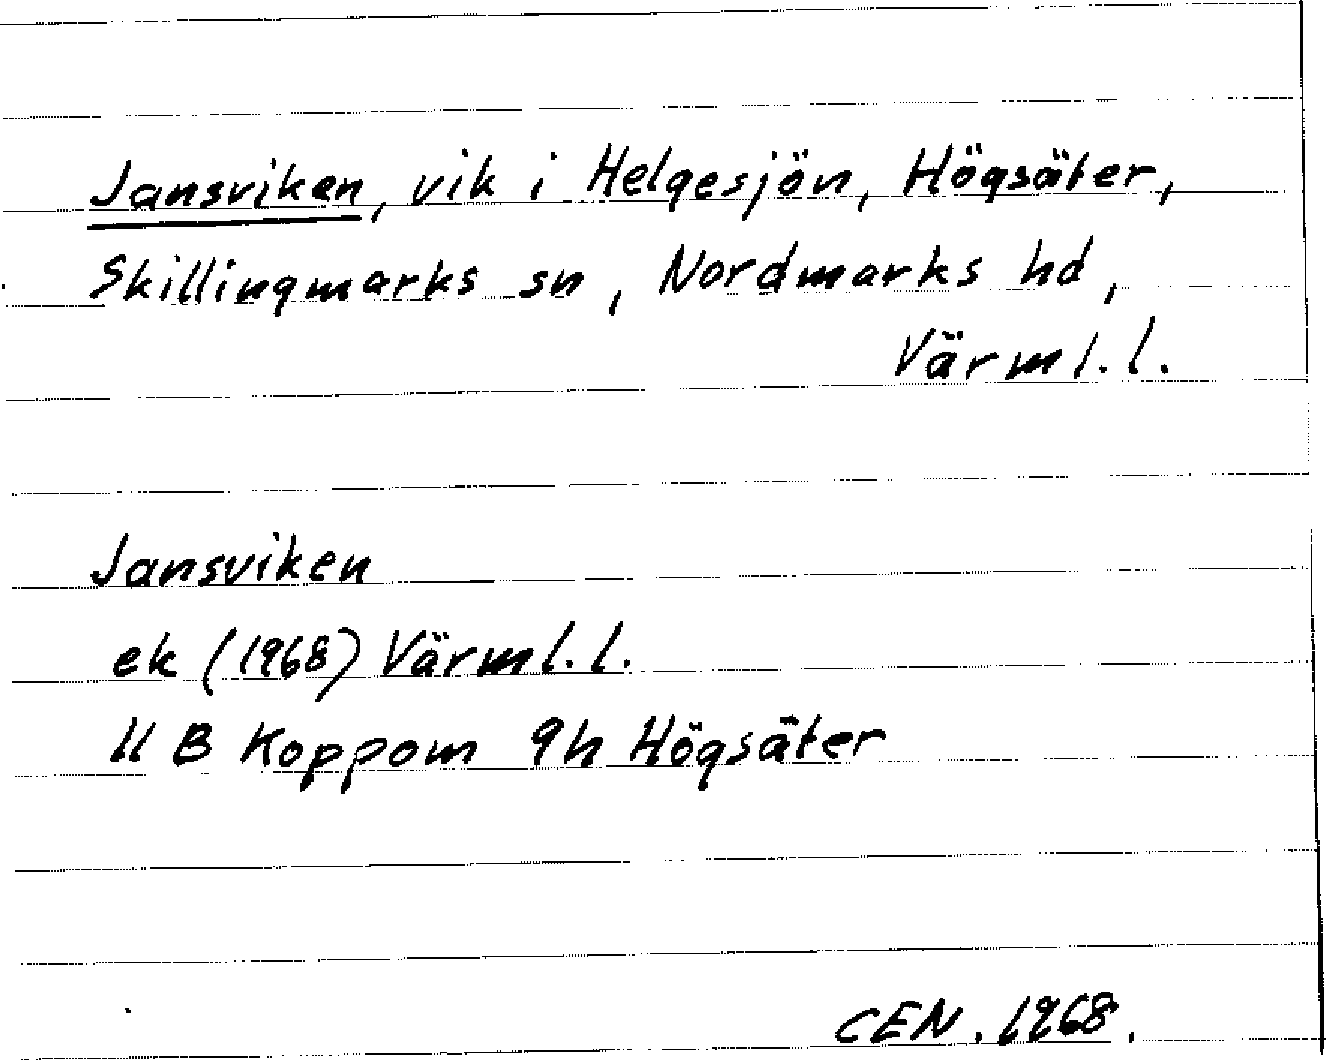 Jansviken, vik i Helgesjön, Högsäter,
Skillingmarks sn, Nordmarks hd,
Värml.l.
Jansviken
ek (1968) Värml.l.
11 B Koppom 9h Högsäter
CEN. 1968.